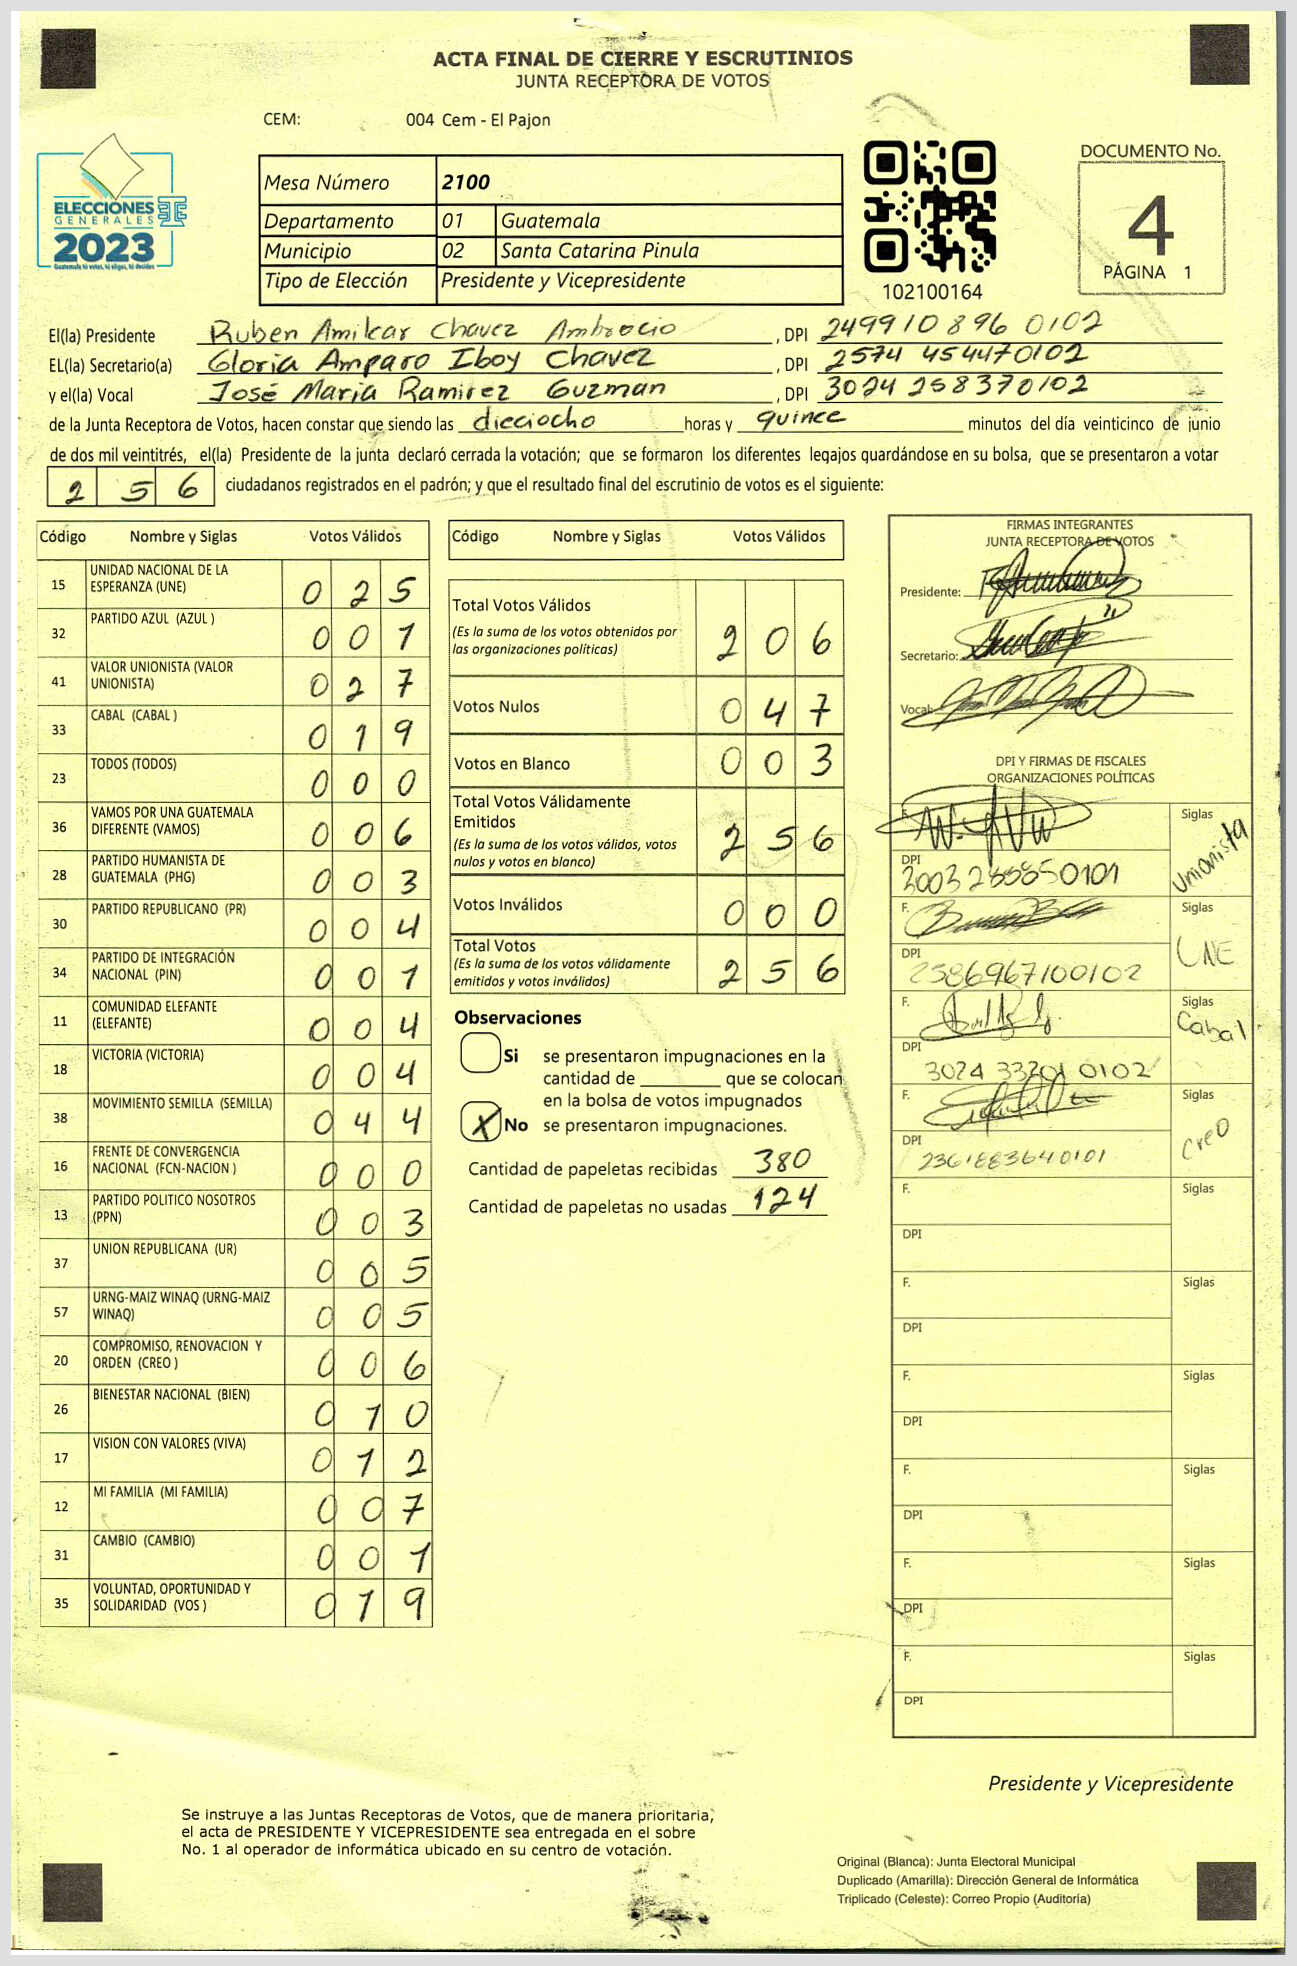 ACTA FINAL DE CIERRE Y ESCRUTINIOS
JUNTA RECEPTORA DE VOTOS
CEM: 004 Cem - El Pajon
ELECCIONES
GENERALES
2023
Mesa Número 2100
Departamento 01 Guatemala
Municipio 02 Santa Catarina Pinula
Tipo de Elección Presidente y Vicepresidente
102100164
DOCUMENTO No.
4
PÁGINA 1
El(la) Presidente Ruben Amilcar Chavez Ambrocio , DPI 249910896 0102
EL(la) Secretario(a) Gloria Amparo Iboy Chavez , DPI 2574 454470102
y el(la) Vocal José Maria Ramirez Guzman , DPI 3024 258370102
de la Junta Receptora de Votos, hacen constar que siendo las dieciocho horas y quince minutos del día veinticinco de junio
de dos mil veintitrés, el(la) Presidente de la junta declaró cerrada la votación; que se formaron los diferentes legajos quardándose en su bolsa, que se presentaron a votar
256 ciudadanos registrados en el padrón; y que el resultado final del escrutinio de votos es el siguiente:
Código Nombre y Siglas Votos Válidos
15 UNIDAD NACIONAL DE LA
ESPERANZA (UNE) 025
32 PARTIDO AZUL (AZUL ) 001
41 VALOR UNIONISTA (VALOR
UNIONISTA) 027
33 CABAL (CABAL ) 019
23 TODOS (TODOS) 000
36 VAMOS POR UNA GUATEMALA
DIFERENTE (VAMOS) 006
28 PARTIDO HUMANISTA DE
GUATEMALA (PHG) 003
30 PARTIDO REPUBLICANO (PR) 004
34 PARTIDO DE INTEGRACIÓN
NACIONAL (PIN) 001
11 COMUNIDAD ELEFANTE
(ELEFANTE) 004
18 VICTORIA (VICTORIA) 004
38 MOVIMIENTO SEMILLA (SEMILLA) 044
16 FRENTE DE CONVERGENCIA
NACIONAL (FCN-NACION ) 000
13 PARTIDO POLITICO NOSOTROS
(PPN) 003
37 UNION REPUBLICANA (UR) 005
57 URNG-MAIZ WINAQ (URNG-MAIZ
WINAQ) 005
20 COMPROMISO, RENOVACION Y
ORDEN (CREO ) 006
26 BIENESTAR NACIONAL (BIEN) 010
17 VISION CON VALORES (VIVA) 012
12 MI FAMILIA (MI FAMILIA) 007
31 CAMBIO (CAMBIO) 001
35 VOLUNTAD, OPORTUNIDAD Y
SOLIDARIDAD (VOS ) 019
Código Nombre y Siglas Votos Válidos
Total Votos Válidos
(Es la suma de los votos obtenidos por
las organizaciones políticas) 206
Votos Nulos 047
Votos en Blanco 003
Total Votos Válidamente
Emitidos
(Es la suma de los votos válidos, votos
nulos y votos en blanco) 256
Votos Inválidos 000
Total Votos
(Es la suma de los votos válidamente
emitidos y votos inválidos) 256
Observaciones
Si se presentaron impugnaciones en la
cantidad de ________ que se colocan
en la bolsa de votos impugnados
X No se presentaron impugnaciones.
Cantidad de papeletas recibidas 380
Cantidad de papeletas no usadas 124
FIRMAS INTEGRANTES
JUNTA RECEPTORA DE VOTOS
Presidente:
Secretario:
Vocal:
DPI Y FIRMAS DE FISCALES
ORGANIZACIONES POLÍTICAS
F. Siglas Unionista
DPI
F. Siglas UNE
DPI 2586967100102
F. Siglas Cabal
DPI 3024 33201 0102
F. Siglas Creo
DPI
F. Siglas
DPI
F. Siglas
DPI
F. Siglas
DPI
F. Siglas
DPI
F. Siglas
DPI
F. Siglas
DPI
Presidente y Vicepresidente
Se instruye a las Juntas Receptoras de Votos, que de manera prioritaria,
el acta de PRESIDENTE Y VICEPRESIDENTE sea entregada en el sobre
No. 1 al operador de informática ubicado en su centro de votación.
Original (Blanca): Junta Electoral Municipal
Duplicado (Amarilla): Dirección General de Informática
Triplicado (Celeste): Correo Propio (Auditoría)